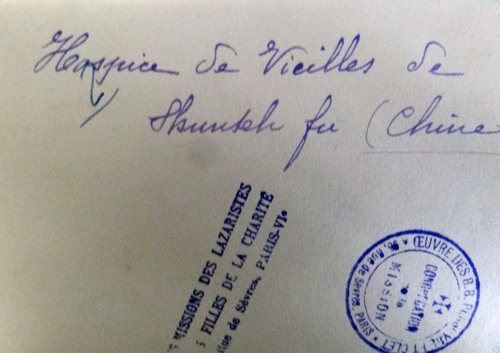 Hospice de Vieilles de
Shunteh fu (Chine
MISSIONS DES LAZARISTES
FILLES DE LA CHARITÉ
de Sèvres, PARIS-VIe
ŒUVRE DES B.B. ET CLET
Rue de Sèvres, PARIS
CONGRÉGATION
de la
MISSION